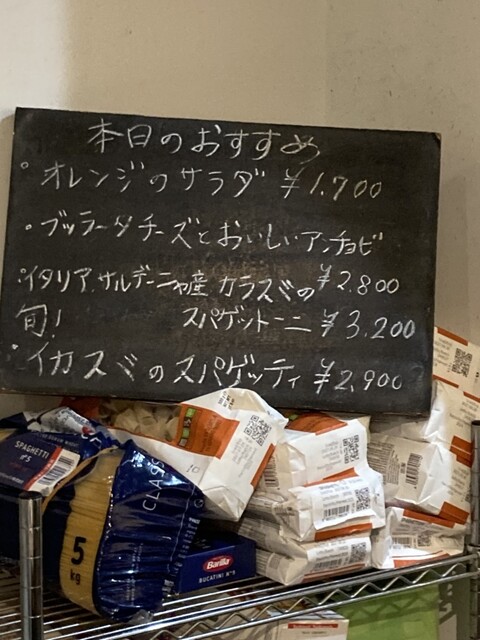 本日のおすすめ
・オレンジのサラダ ¥1,700
・ブッラータチーズとおいしいアンチョビ
¥2,800
・イタリア、サルデーニャ産 カラスミの
旬! スパゲットーニ ¥3,200
・イカスミのスパゲッティ ¥2,900
SPAGHETTI
Nº5
CLASS
5
kg
Barilla
BUCATINI Nº9